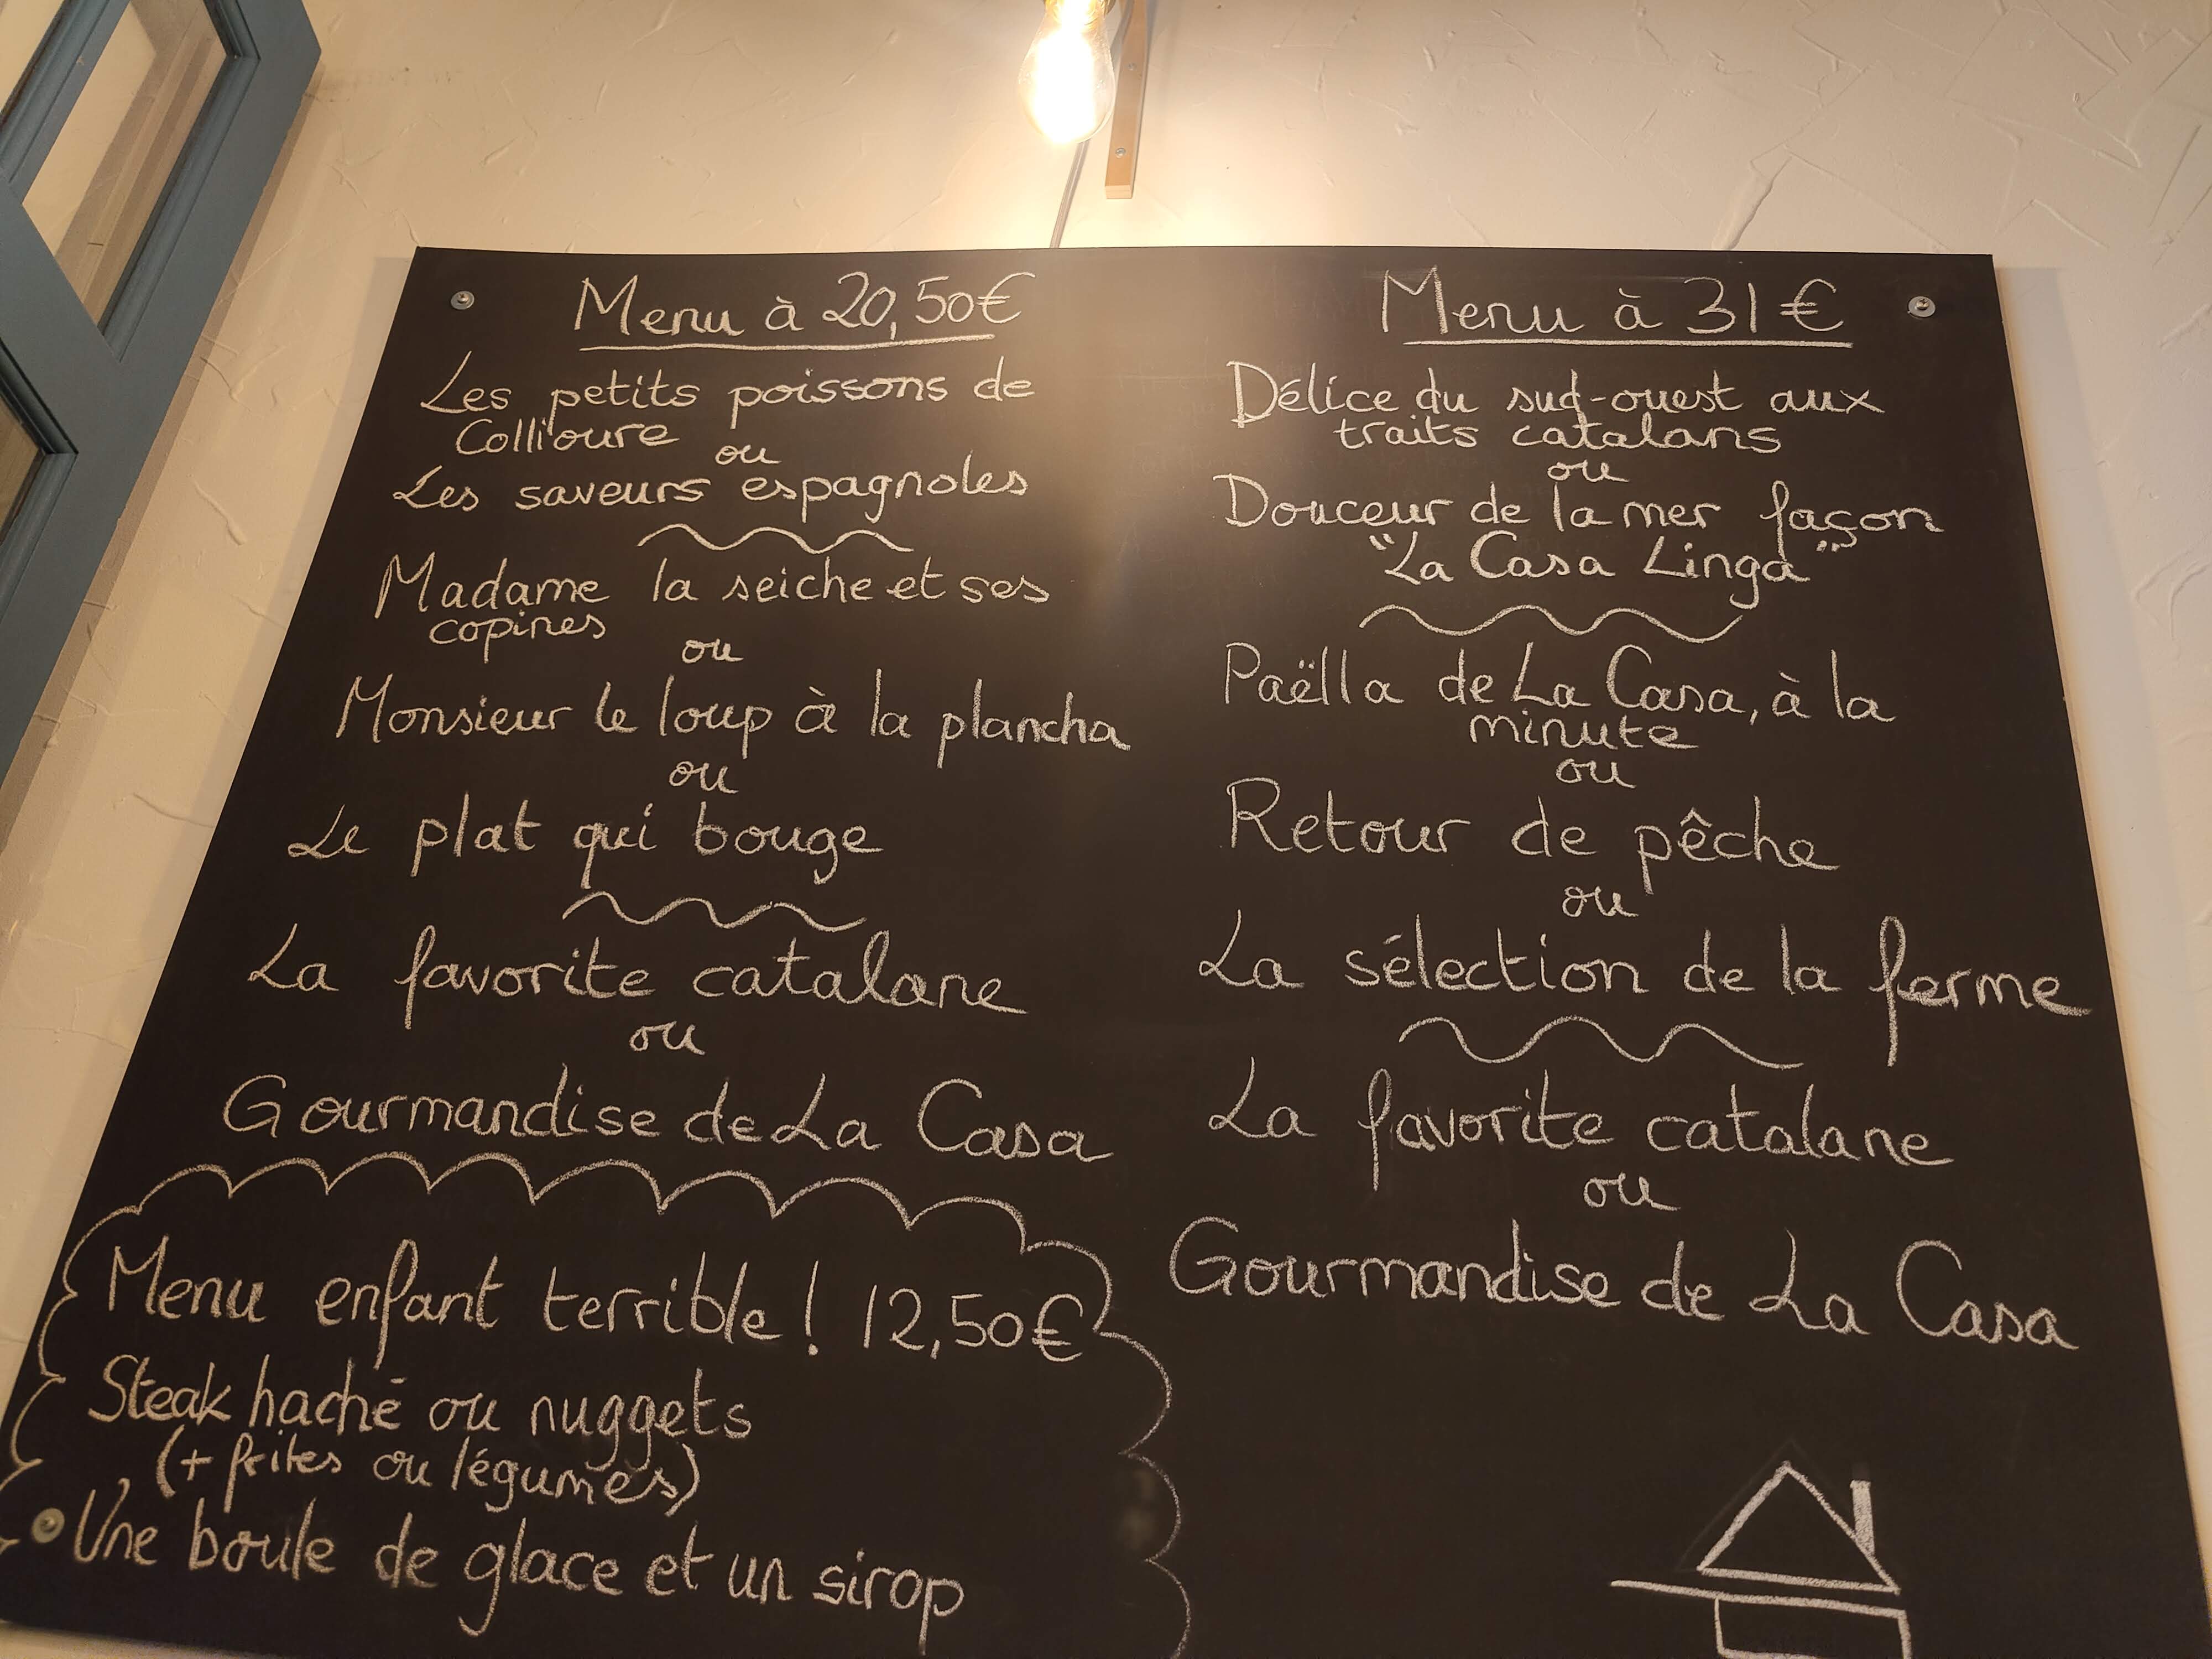 Menu à 20,50€
Les petits poissons de
Collioure
ou
Les saveurs espagnoles
Madame la seiche et ses
copines
ou
Monsieur le loup à la plancha
ou
Le plat qui bouge
La favorite catalane
ou
Gourmandise de La Casa
Menu enfant terrible ! 12,50€
Steak haché ou nuggets
(+ frites ou légumes)
Une boule de glace et un sirop
Menu à 31€
Délice du sud-ouest aux
traits catalans
ou
Douceur de la mer façon
"La Casa Linga"
Paëlla de La Casa, à la
minute
ou
Retour de pêche
ou
La sélection de la ferme
La favorite catalane
ou
Gourmandise de La Casa